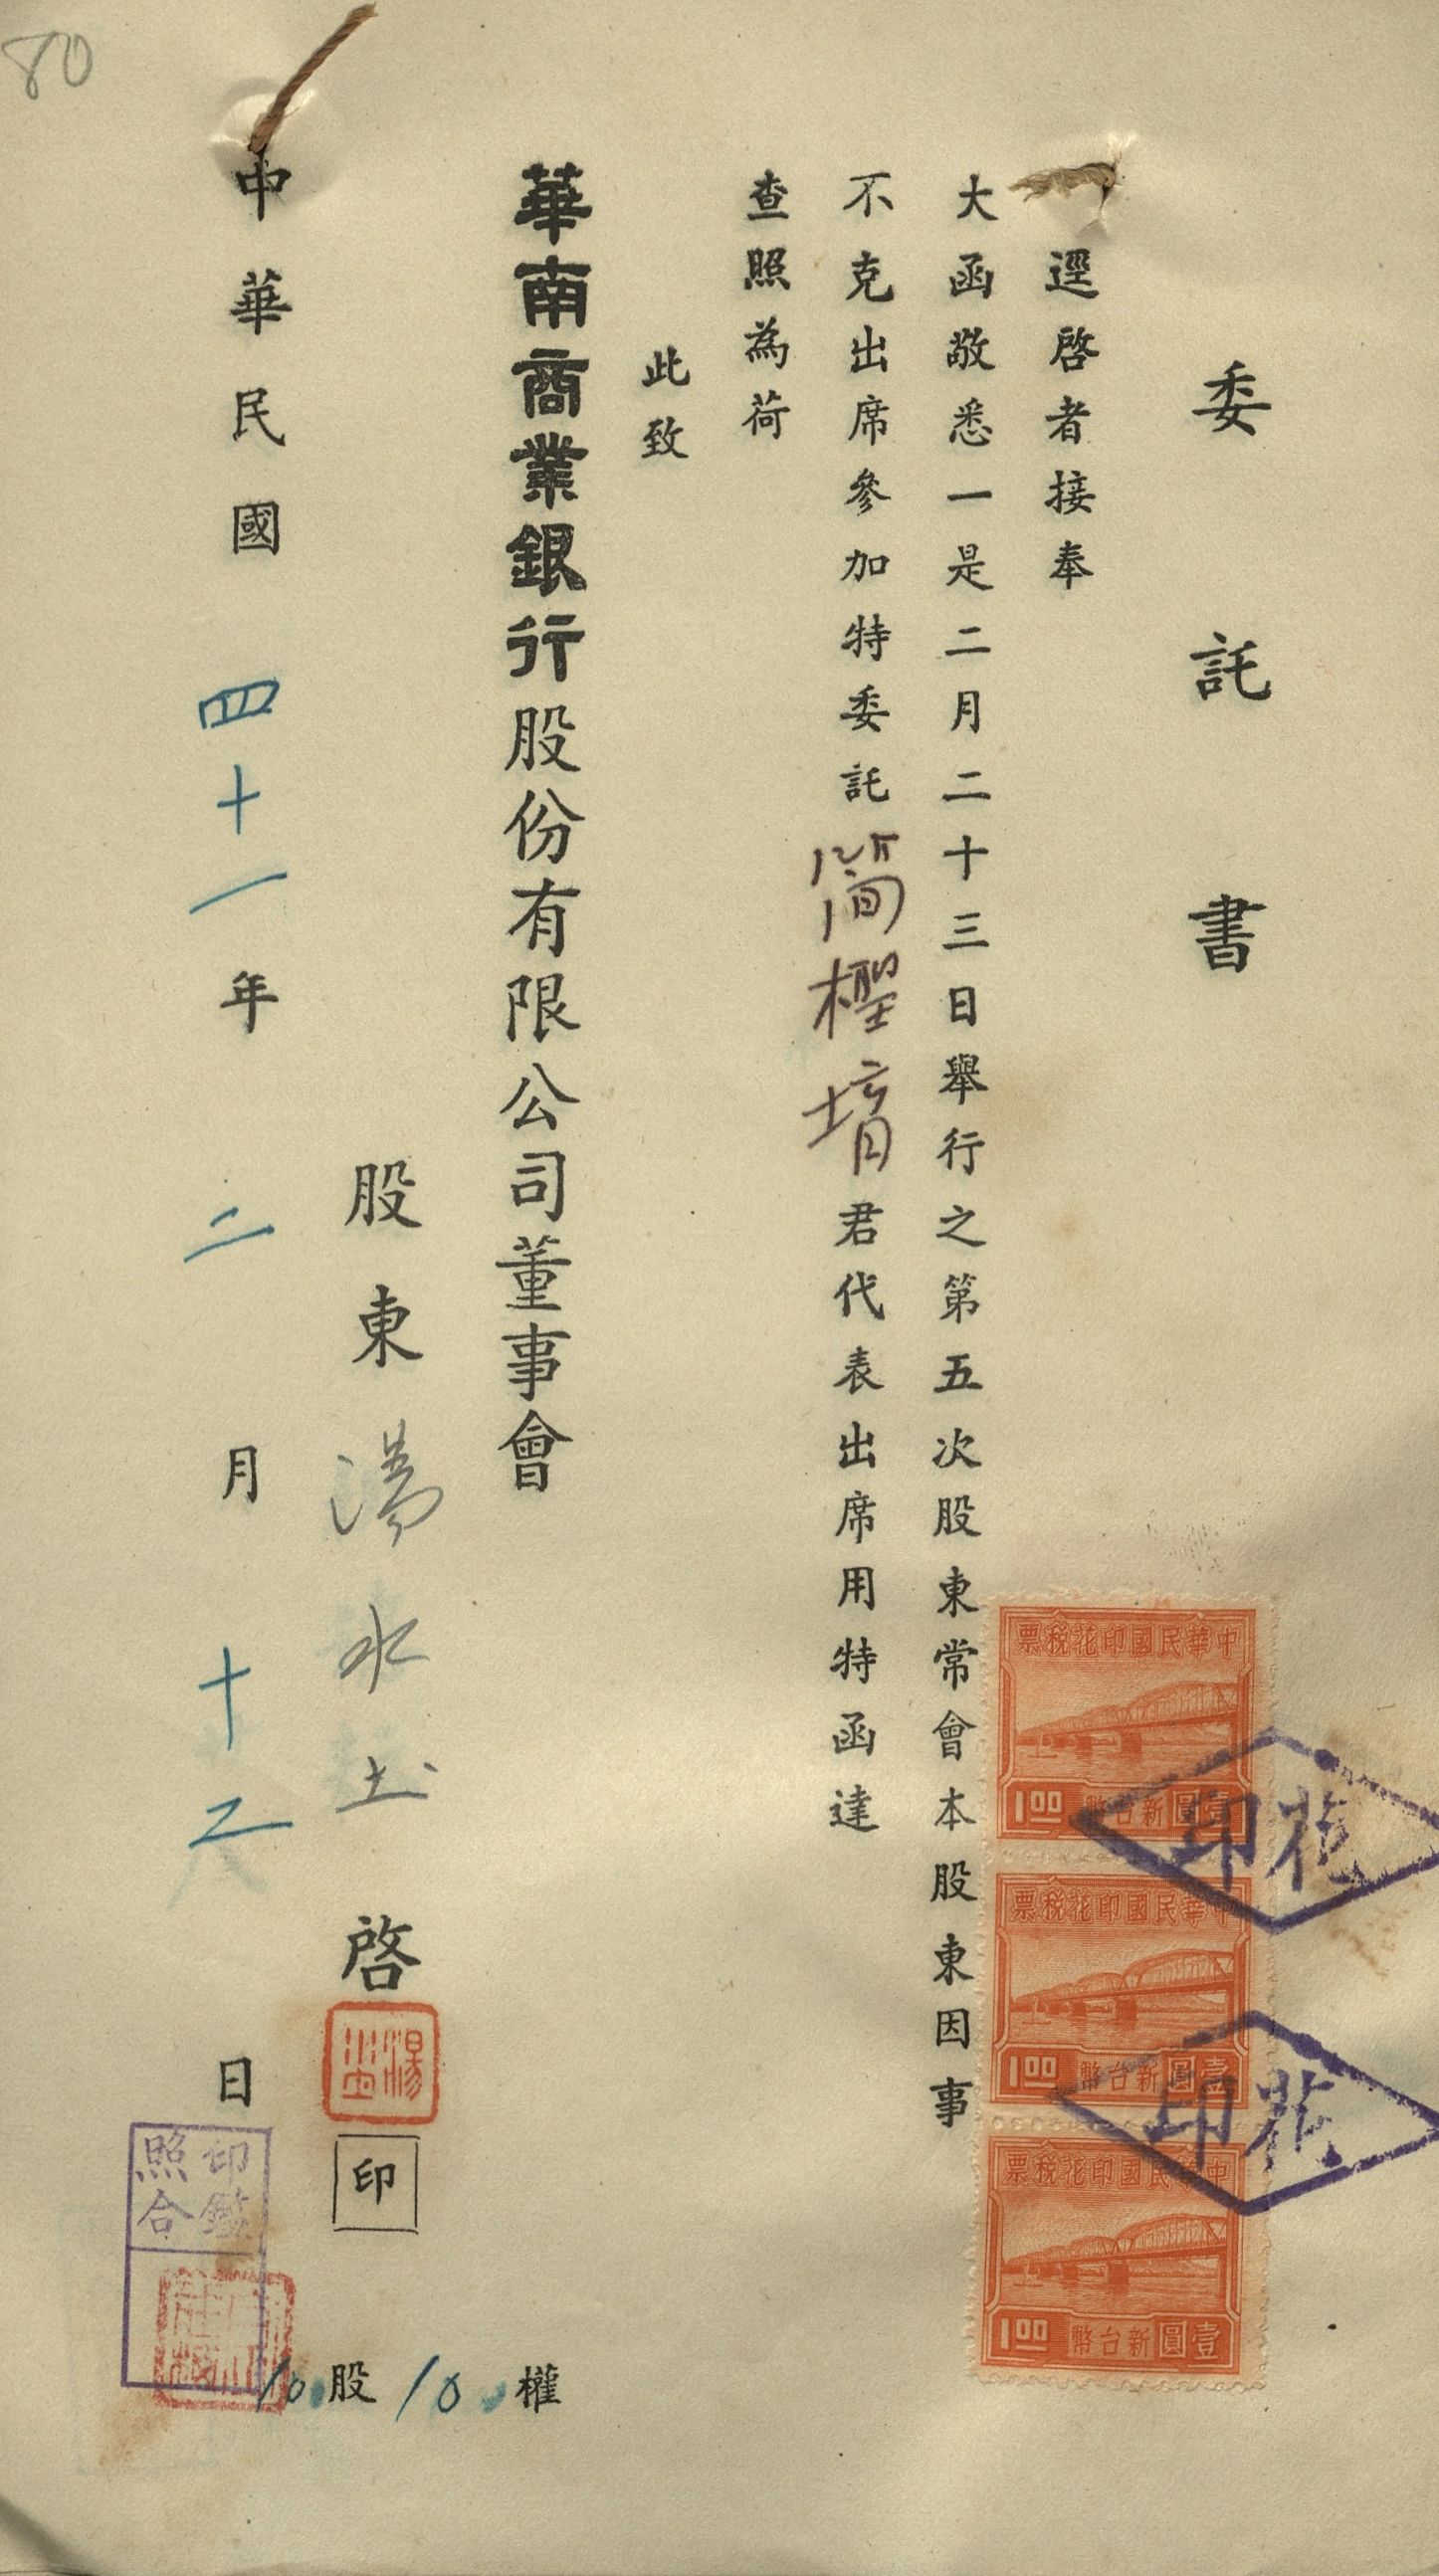 80
委託書
逕啓者接奉
大函敬悉一是二月二十三日舉行之第五次股東常會本股東因事
不克出席參加特委託簡檉堉君代表出席用特函達
查照為荷
此致
華南商業銀行股份有限公司董事會
股東湯水土啓
印
中華民國四十一年二月十乙日
10股10權
中華民國印花稅票
壹圓新台幣 1.00
中華民國印花稅票
壹圓新台幣 1.00
中華民國印花稅票
壹圓新台幣 1.00
花印
花印
印鑑
照合